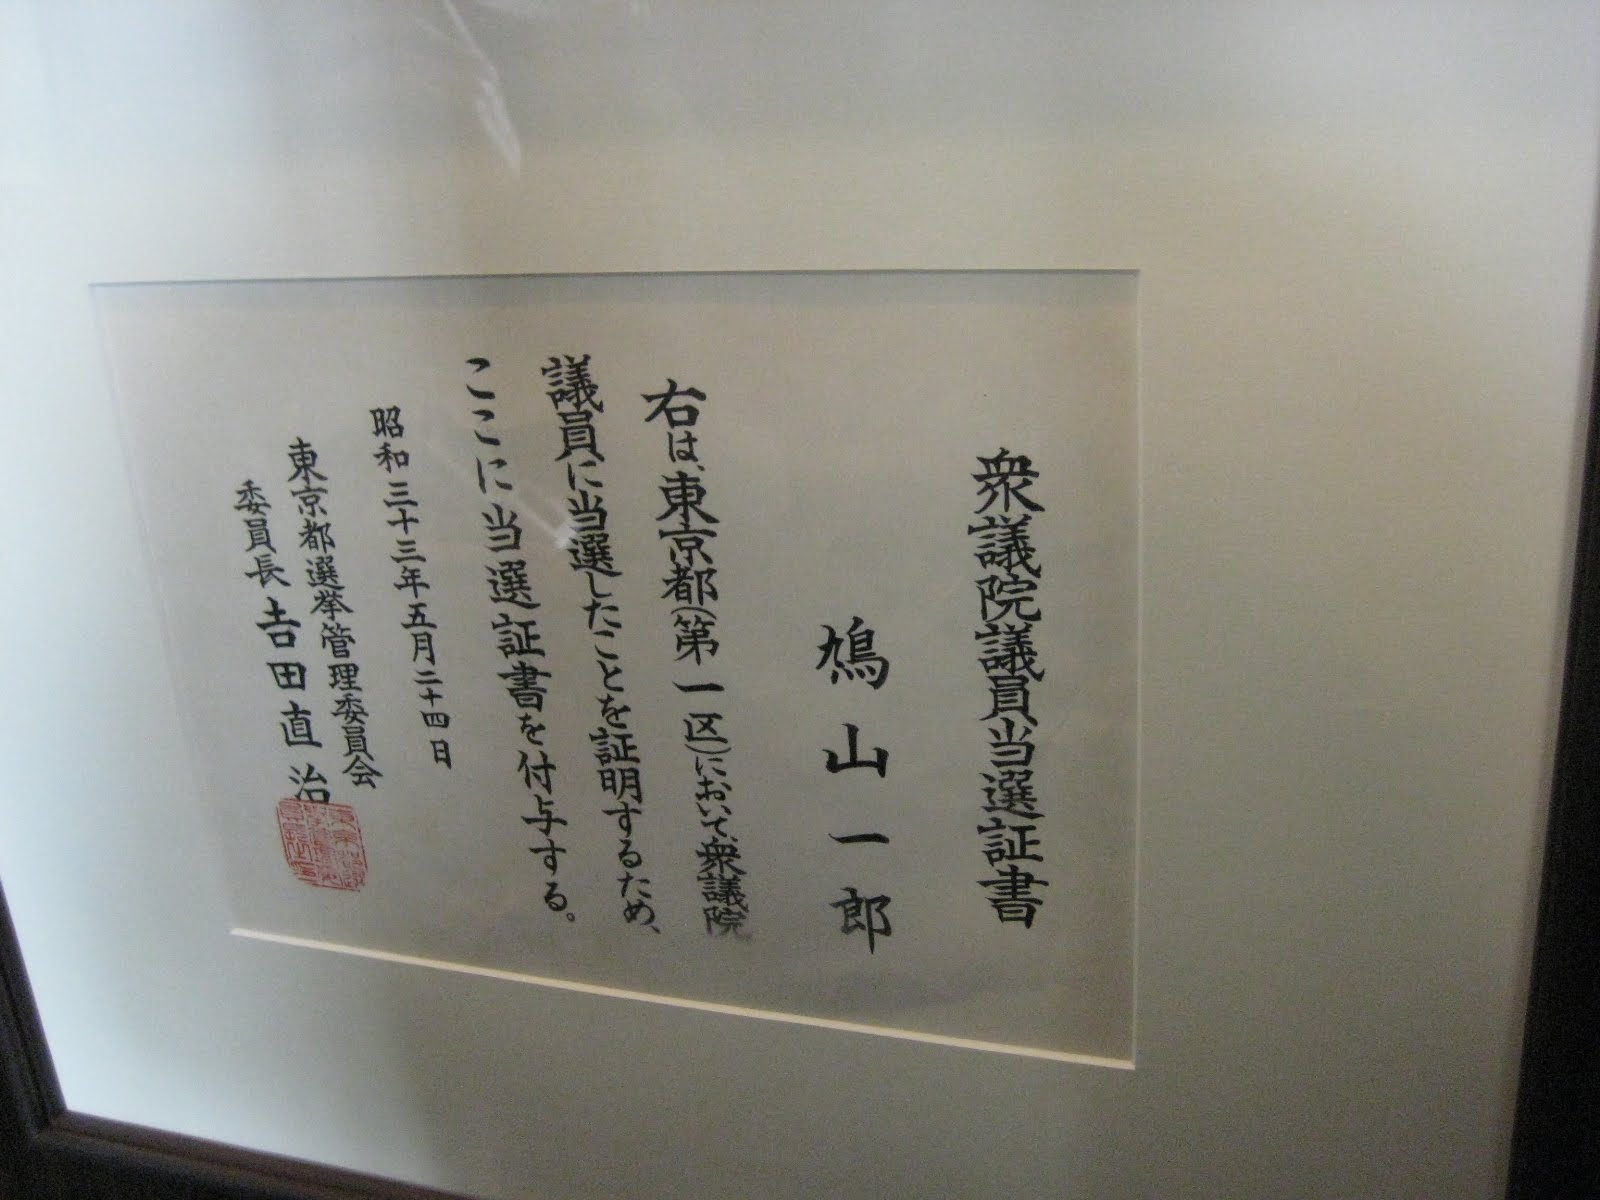 衆議院議員当選証書
鳩山一郎
右は、東京都(第一区)において、衆議院
議員に当選したことを証明するため、
ここに当選証書を付与する。
昭和三十三年五月二十四日
東京都選挙管理委員会
委員長 吉田直治